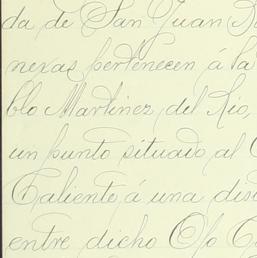 da de San Juan B
nexas pertenecen á la
blo Martinez del Rio,
un punto situado al
Caliente, á una dis
entre dicho Ojo C